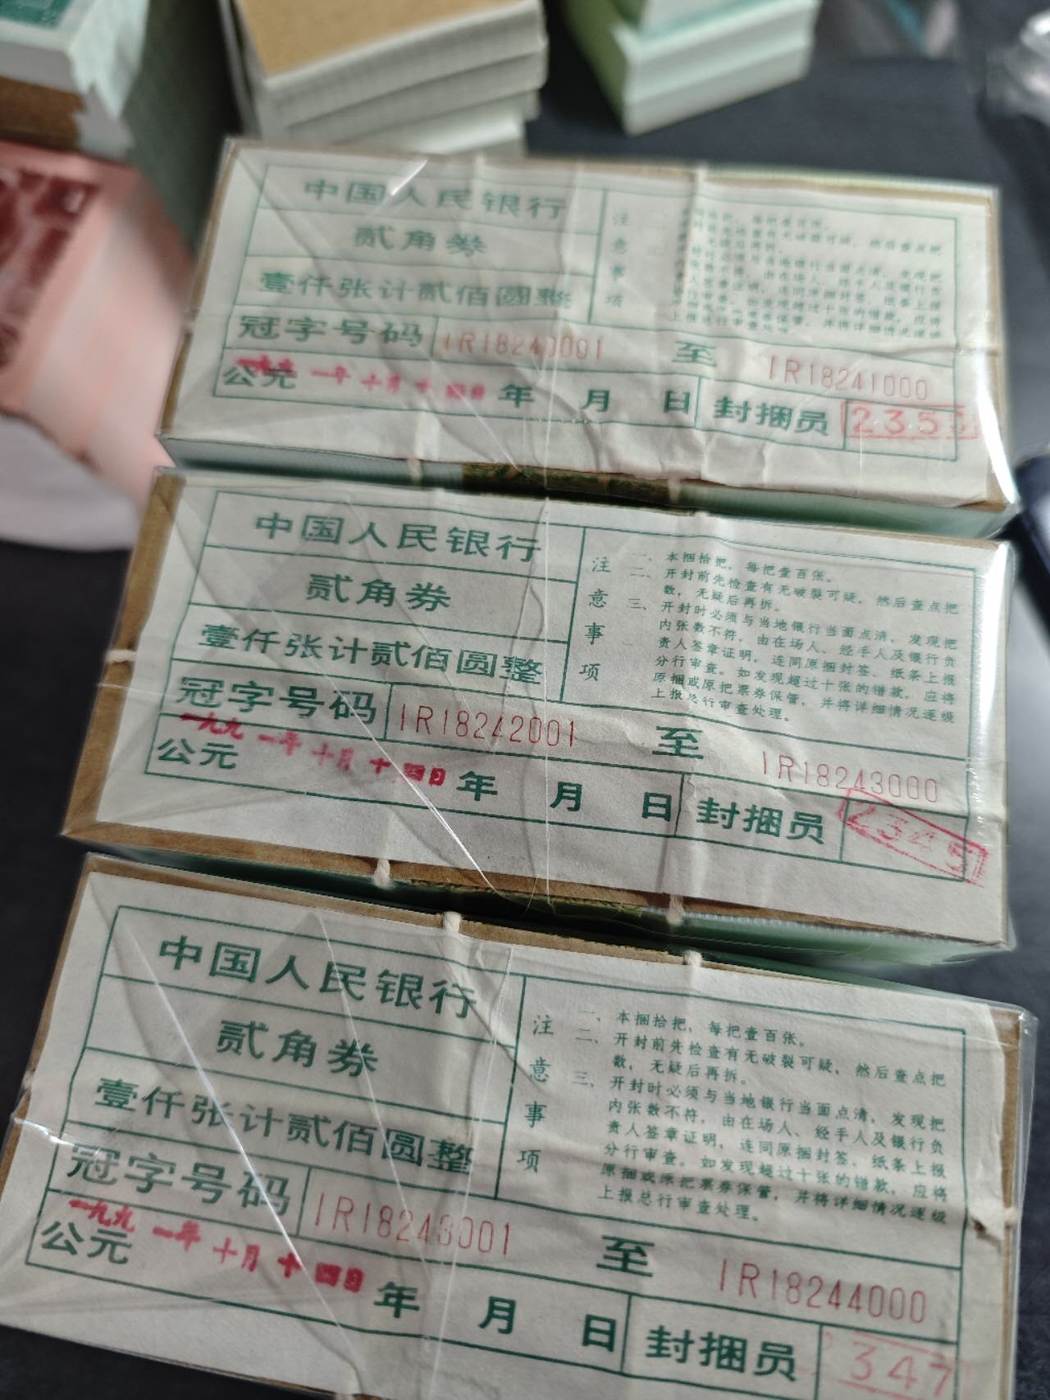 中国人民银行
贰角券
壹仟张计贰佰圆整
冠字号码 IR18240001 至 IR18241000
公元 一九九一年十月十四日 年 月 日 封捆员 2355
注意事项
中国人民银行
贰角券
壹仟张计贰佰圆整
冠字号码 IR18242001 至 IR18243000
公元 一九九一年十月十四日 年 月 日 封捆员 2345
注意事项
一、本捆拾把，每把壹百张。
二、开封前先检查有无破裂可疑，然后查点把
数，无疑后再拆。
三、开封时必须与当地银行当面点清，发现把
内张数不符，由在场人、经手人及银行负
责人签章证明，连同原捆封签、纸条上报
分行审查。如发现超过十张的错款，应将
原捆或原把票券保管，并将详细情况逐级
上报总行审查处理。
中国人民银行
贰角券
壹仟张计贰佰圆整
冠字号码 IR18243001 至 IR18244000
公元 一九九一年十月十四日 年 月 日 封捆员 347
注意事项
一、本捆拾把，每把壹百张。
二、开封前先检查有无破裂可疑，然后查点把
数，无疑后再拆。
三、开封时必须与当地银行当面点清，发现把
内张数不符，由在场人、经手人及银行负
责人签章证明，连同原捆封签、纸条上报
分行审查。如发现超过十张的错款，应将
原捆或原把票券保管，并将详细情况逐级
上报总行审查处理。